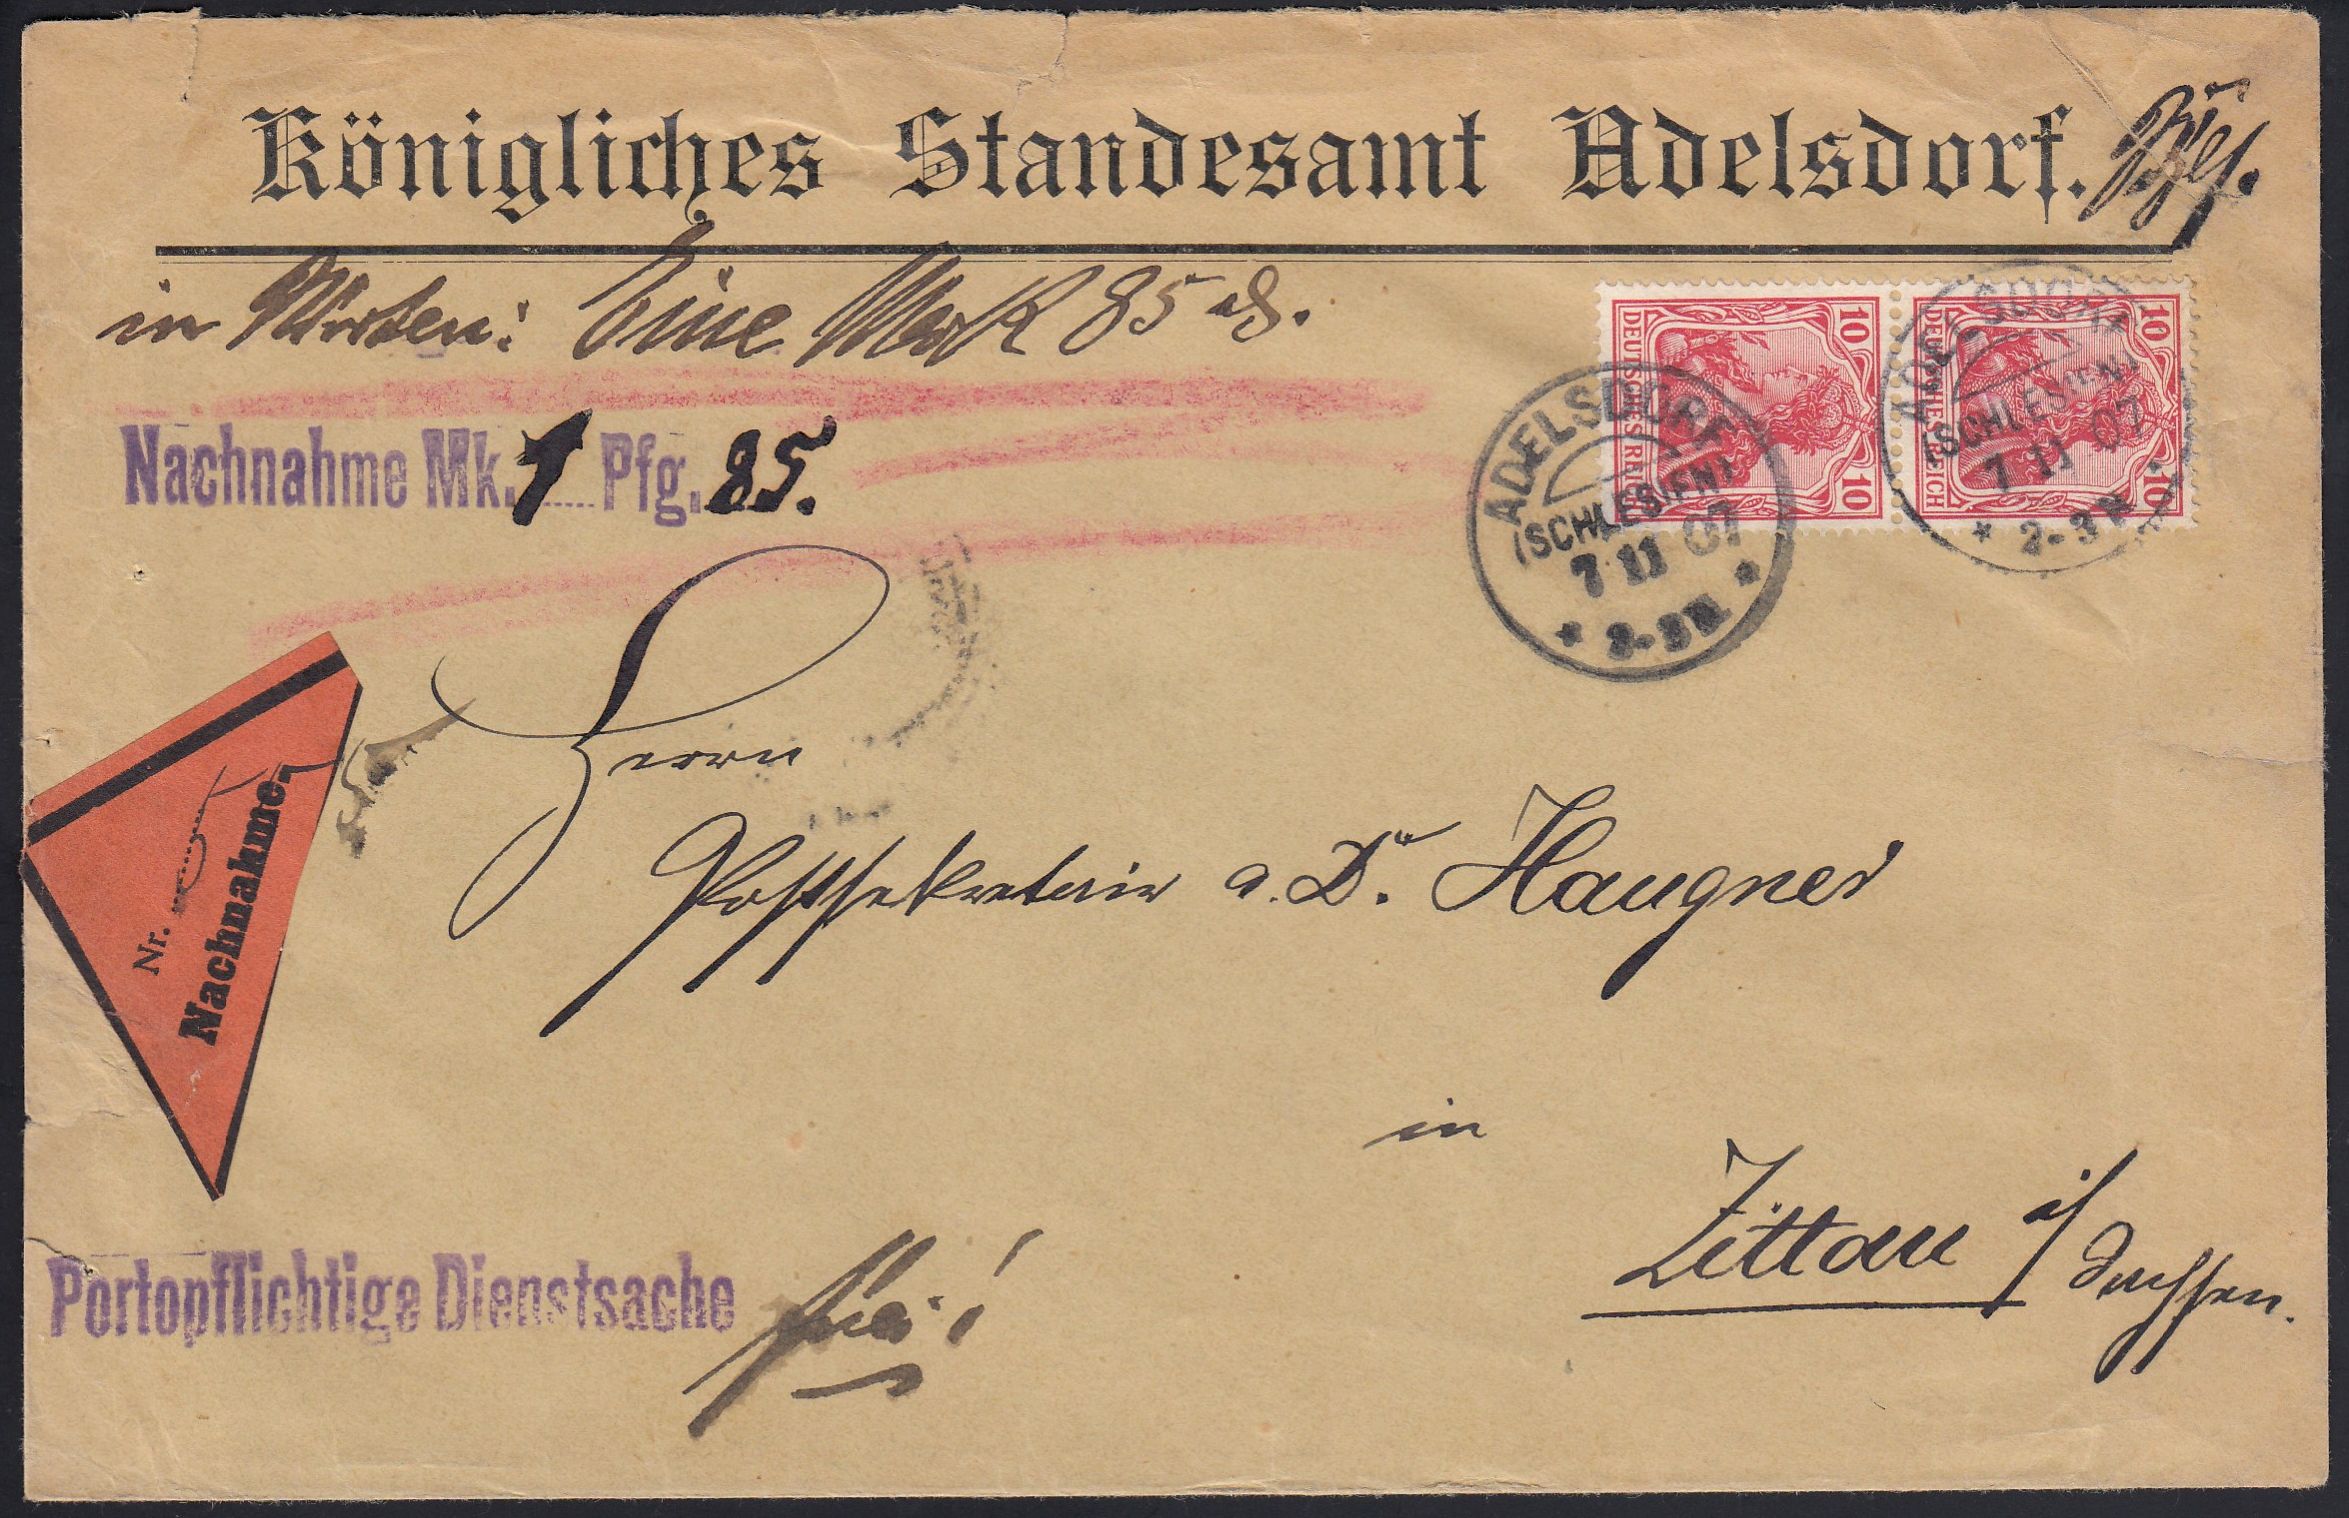 Königliches Standesamt Adelsdorf.
in Worten: Eine Mark 85 
10 DEUTSCHES REICH 10
10 DEUTSCHES REICH 10
ADELSDORF
(SCHLESIEN)
7 11 07
* 2-3N *
ADELSDORF
(SCHLESIEN)
7 11 07
* 2-3N
Nachnahme Mk. 1 Pfg. 85.
Nr.
Nachnahme
Herrn
Postsekretär a. D. Haugner
in
Zittau i/ Sachsen.
Portopflichtige Dienstsache
frei!